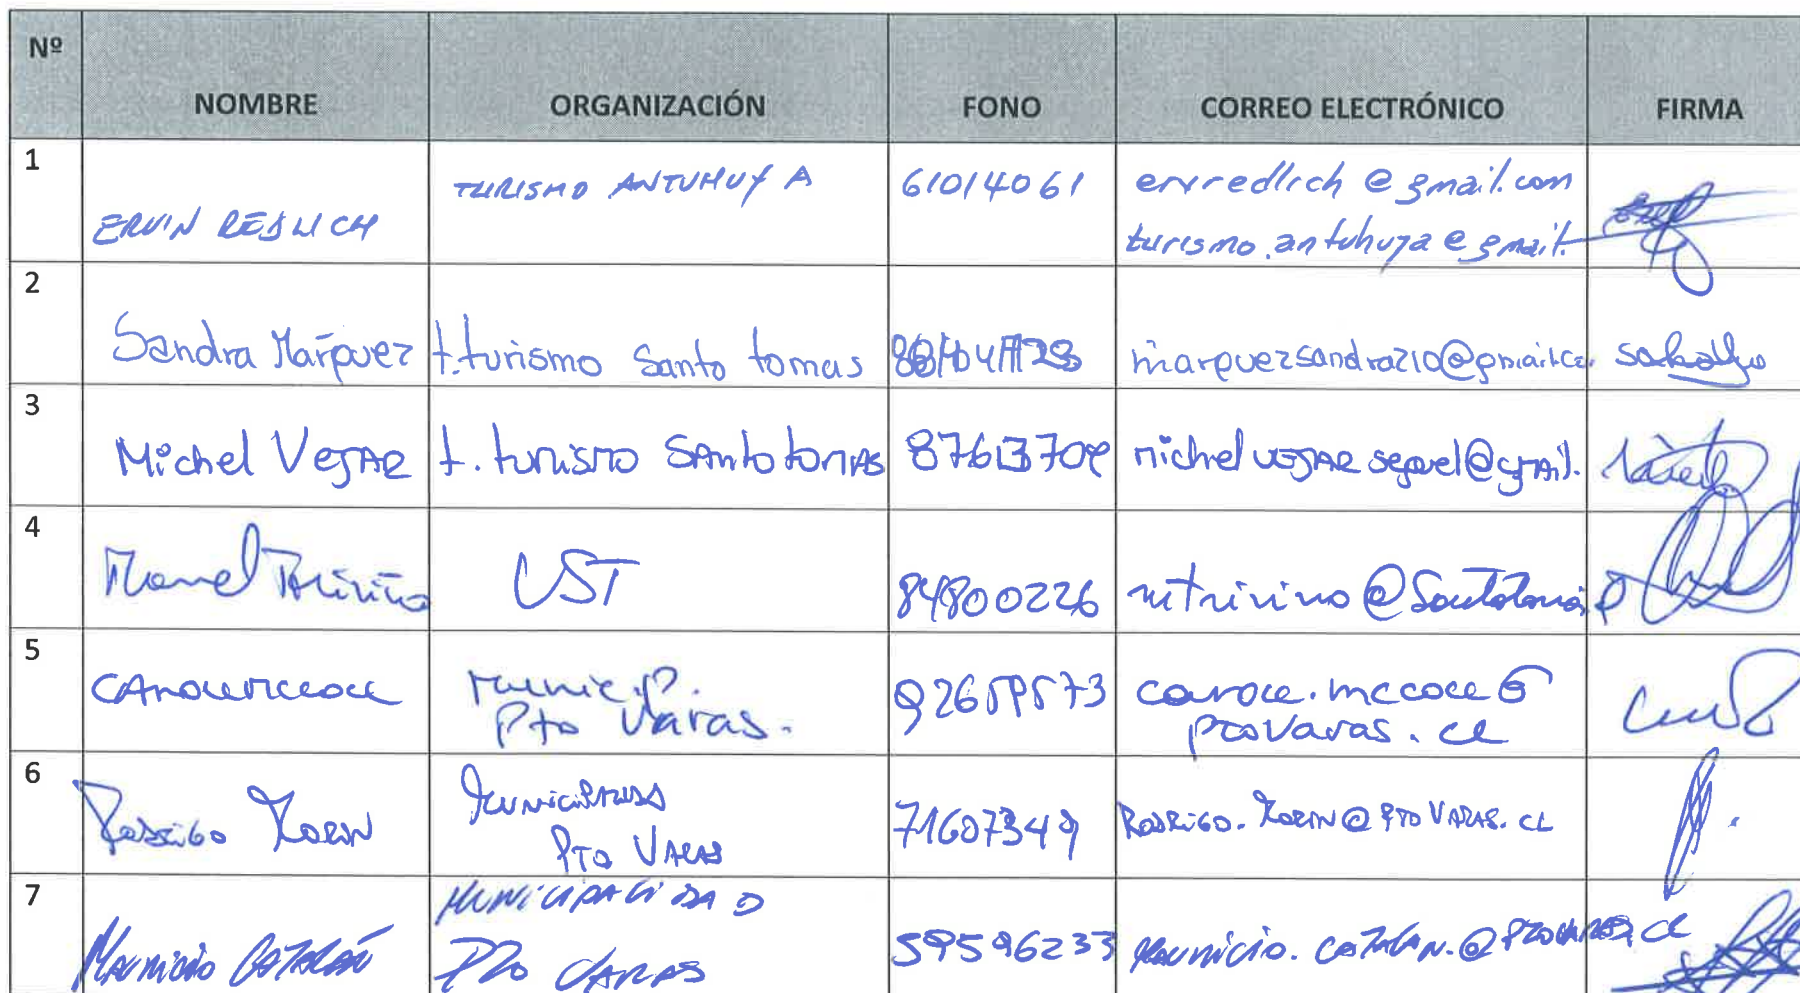 Nº NOMBRE ORGANIZACIÓN FONO CORREO ELECTRÓNICO FIRMA
1 ERVIN REDLICH TURISMO ANTUHUYA 61014061 ervredlich@gmail.com
turismo.antuhuya@gmail.
2 Sandra Márquez t.turismo Santo tomas marquezsandra210@gmail.co
3 Michel VEJAR t. turismo SAnto tomAS michelvejARseguel@gmAil.
4 Manuel Triviño UST 84800226 mtrivino@Santotomas
5 CAROLE MCCOLL Municip.
Pto Varas. carole.mccoll@
ptovaras.cl
6 RodRiGo MORIN MuniciPALIDAD
PTO VARAS 71607349 RODRIGO.MORIN@PTOVARAS.CL
7 MAuricio CATALÁN MUNICIPALIDAD
PTO VARAS 59596233 MAuricio.CATALAN.@PTOVARAS.CL